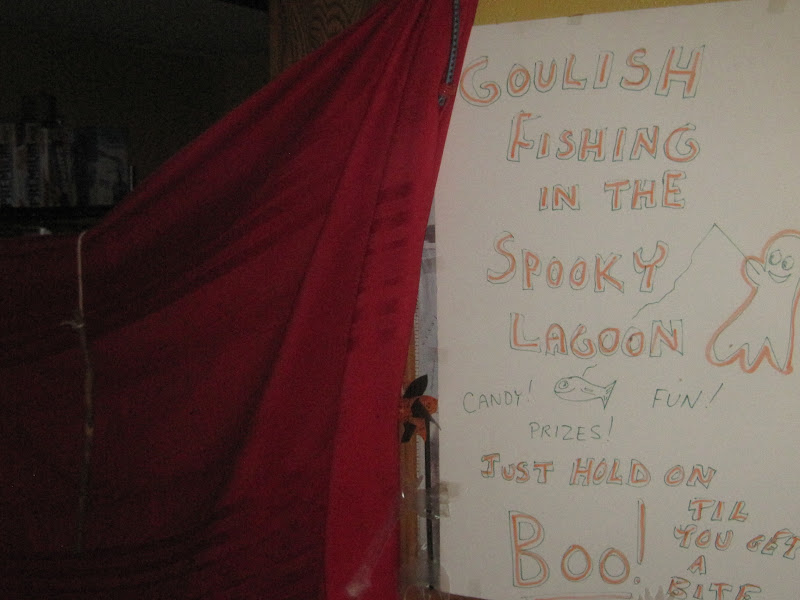 GOULISH
FISHING
IN THE
SPOOKY
LAGOON
CANDY! FUN!
PRIZES!
JUST HOLD ON
TIL
YOU GET
A
BITE
BOO!